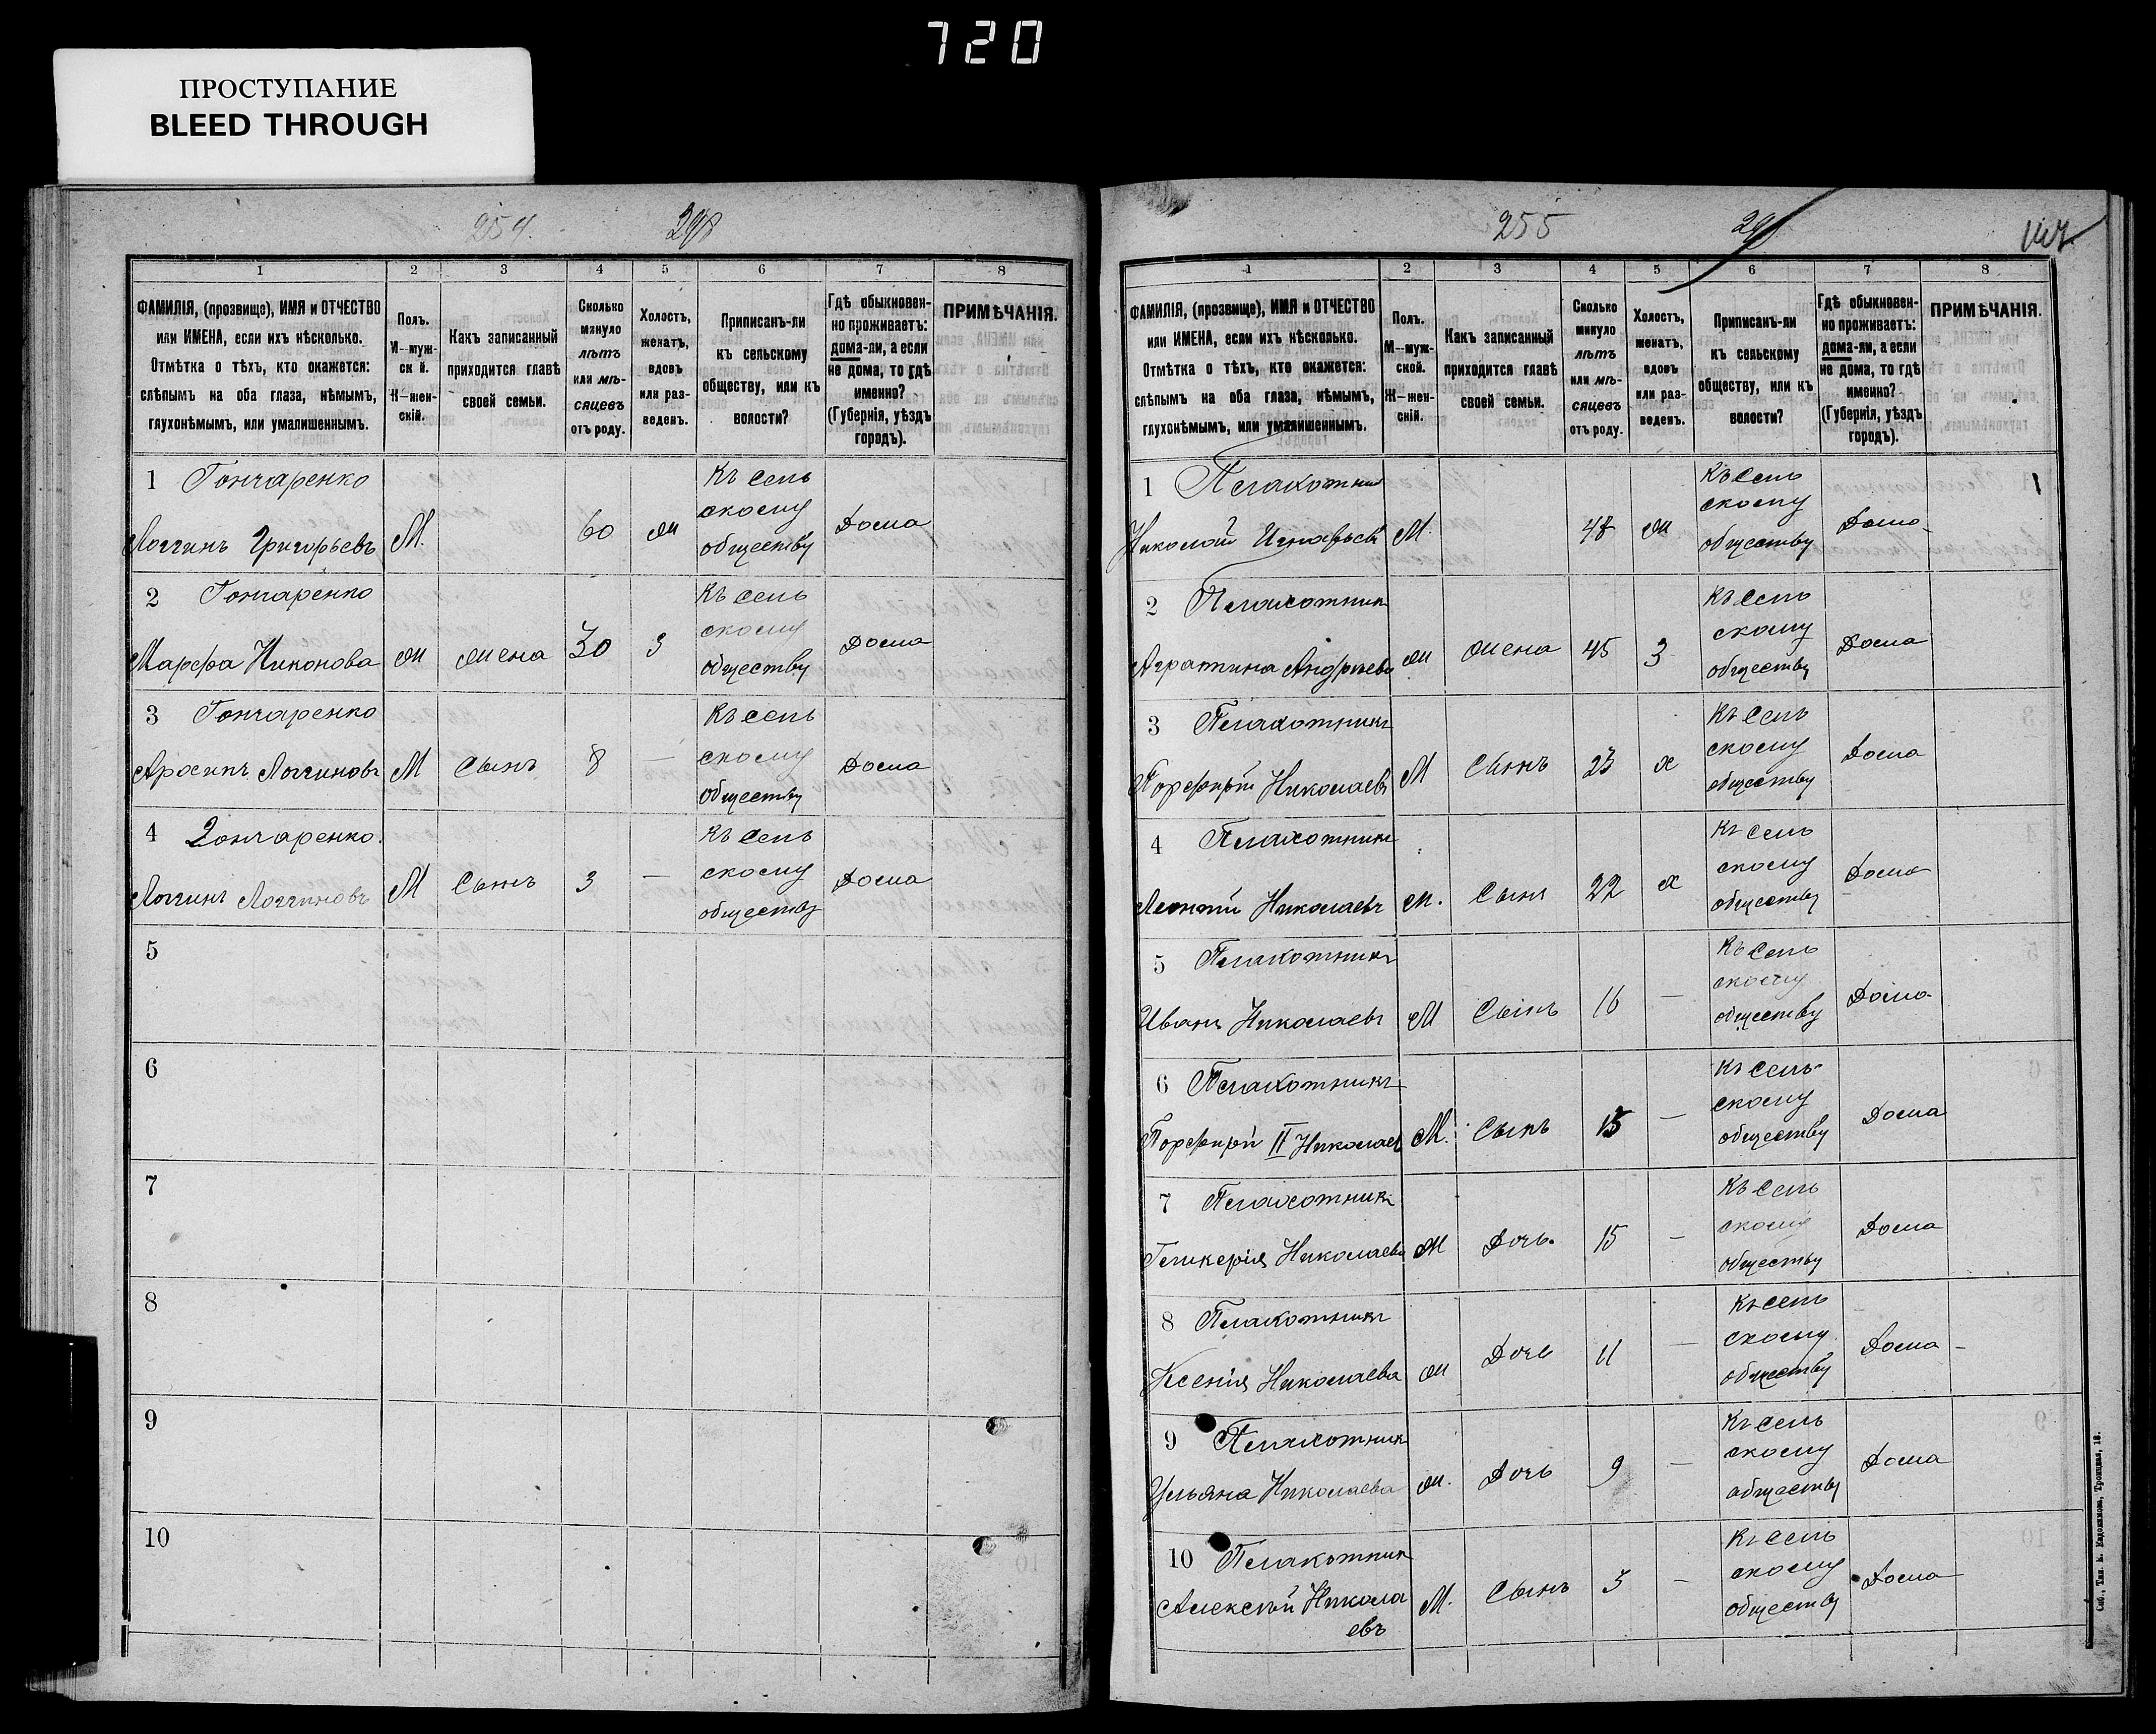 720
ПРОСТУПАНИЕ
BLEED THROUGH
254.
1 2 3 4 5 6 7 8
ФАМИЛІЯ, (прозвище), ИМЯ и ОТЧЕСТВО
или ИМЕНА, если ихъ нѣсколько.
Отмѣтка о тѣхъ, кто окажется:
слѣпымъ на оба глаза, нѣмымъ,
глухонѣмымъ, или умалишеннымъ.
Полъ.
М—муж-
ск й.
Ж—жен-
скій.
Какъ записанный
приходится главѣ
своей семьи.
Сколько
минуло
лѣтъ
или мѣ-
сяцевъ
отъ роду.
Холостъ,
женатъ,
вдовъ
или раз-
веденъ.
Приписанъ-ли
къ сельскому
обществу, или къ
волости?
Гдѣ обыкновен-
но проживаетъ:
дома-ли, а если
не дома, то гдѣ
именно?
(Губернія, уѣздъ
городъ).
ПРИМѢЧАНІЯ.
1 Гончаренко
Логгинъ Григорьевъ М. 60 ж Къ сель
скому
обществу Дома
2 Гончаренко
Марфа Никонова ж жена 30 З Къ сель
скому
обществу Дома
3 Гончаренко
Архипъ Логгиновъ М Сынъ 8 — Къ сель
скому
обществу Дома
4 Гончаренко.
Логгинъ Логгиновъ М Сынъ 3 — Къ сель
скому
обществу Дома
5
6
7
8
9
10
255
1 2 3 4 5 6 7 8
ФАМИЛІЯ, (прозвище), ИМЯ и ОТЧЕСТВО
или ИМЕНА, если ихъ нѣсколько.
Отмѣтка о тѣхъ, кто окажется:
слѣпымъ на оба глаза, нѣмымъ,
глухонѣмымъ, или умалишеннымъ.
Полъ.
М—муж-
ской.
Ж—жен-
скій.
Какъ записанный
приходится главѣ
своей семьи.
Сколько
минуло
лѣтъ
или мѣ-
сяцевъ
отъ роду.
Холостъ,
женатъ,
вдовъ
или раз-
веденъ.
Приписанъ-ли
къ сельскому
обществу, или къ
волости?
Гдѣ обыкновен-
но проживаетъ:
дома-ли, а если
не дома, то гдѣ
именно?
(Губернія, уѣздъ
городъ).
ПРИМѢЧАНІЯ.
1 Плахотник
Николай М. 48 ж Къ сель
скому
обществу Дома
2 Плахотник
Андреева ж жена 45 З Къ сель
скому
обществу Дома
3 Плахотникъ
Порфирій Николаевъ М Сынъ 23 х Къ сель
скому
обществу Дома
4 Плахотникъ
Леонтій Николаевъ М. Сынъ 22 х Къ сель
скому
обществу Дома
5 Плахотникъ
Иванъ Николаевъ М Сынъ 16 — Къ сель
скому
обществу Дома
6 Плахотникъ
Порфирій II Николаев М. Сынъ 15 — Къ сель
скому
обществу Дома
7 Плахотникъ
Гликерія Николаева Ж Дочь. 15 — Къ сель
скому
обществу Дома
8 Плахотникъ
Ксенія Николаева ж Дочь 11 — Къ сель
скому
обществу Дома
9 Плахотник
Ульяна Николаева ж. Дочь 9 — Къ сель
скому
обществу Дома
10 Плахотник
Алексѣй Никола
евъ М. Сынъ 3 — Къ сель
скому
обществу Дома